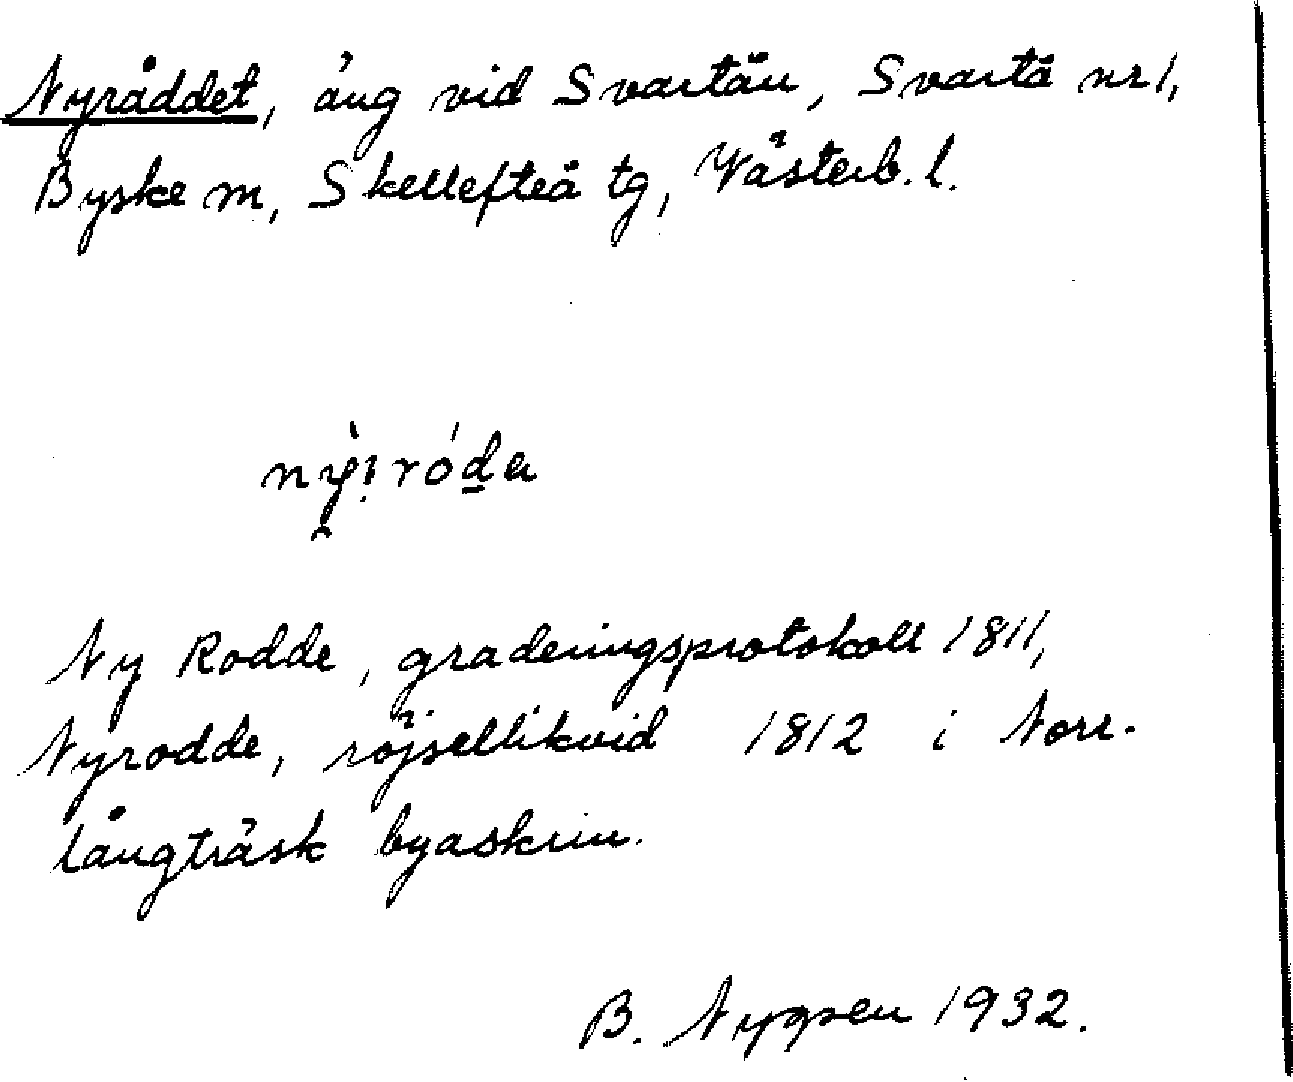 Nyråddet, äng vid Svartån, Svartå nr 1,
Byske sn, Skellefteå tg, Västerb. l.
nỳ̠꞉róda
Ny Rodde, graderingsprotokoll 1811,
Nyrodde, röjsellikvid 1812 i Norr-
långträsk byaskrin.
B. 1932.